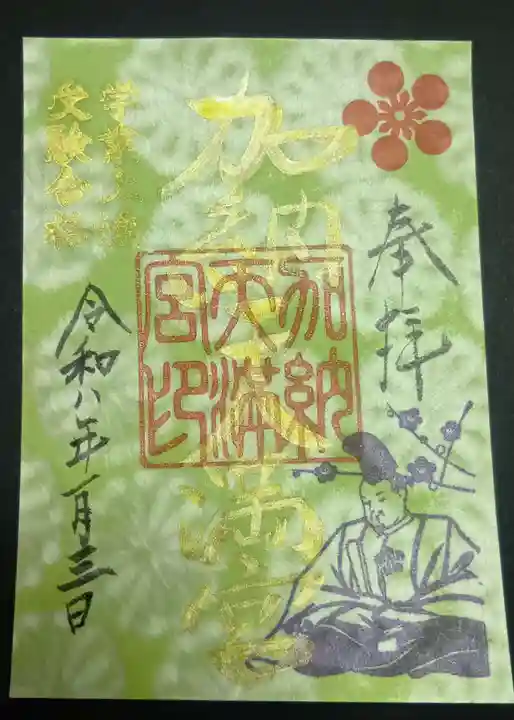 奉拝
加納天満宮
加納天満宮印
学業成就
受験合格
令和八年一月三日